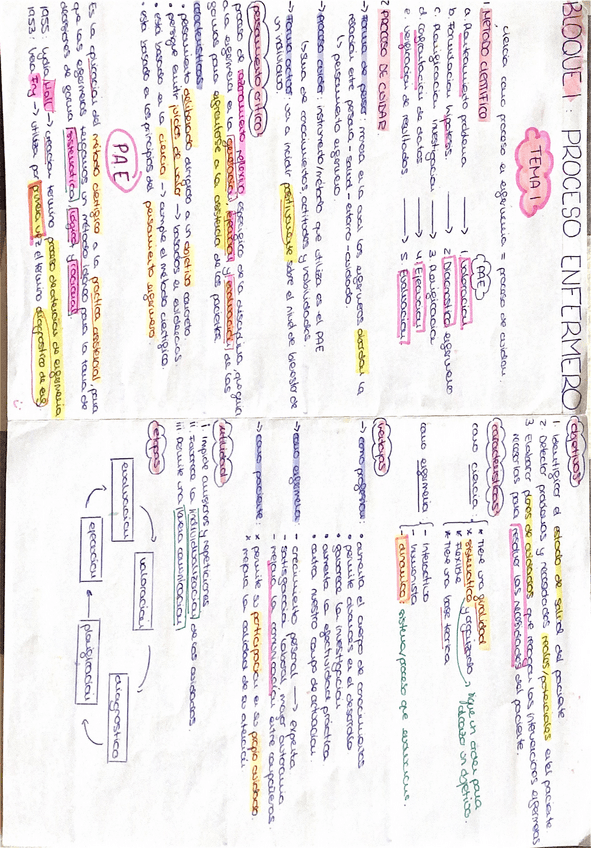 BLOQUE 1: PROCESO ENFERMERO
TEMA 1.
ciencia como proceso de enfermería = proceso de cuidar.
1. MÉTODO CIENTÍFICO
PAE
a. Planteamiento problema → 1. Valoración
b. Formulación hipótesis. → 2. Diagnóstico enfermero
c. Planificación investigación → 3. Planificación
d. Comprobación de datos. → 4. Ejecución
e. Verificación de resultados → 5. Evaluación
2. PROCESO DE CUIDAR
→ Forma de pensar: manera en la cual los enfermeros abordan la
relación entre persona - salud - entorno - cuidados.
↳ pensamiento enfermero.
→ Proceso cuidar: instrumento/método que utiliza es el PAE
↳ suma de conocimientos, actitudes y habilidades.
→ Forma actuar: va a incidir positivamente sobre el nivel de bienestar
Pensamiento crítico
proceso de razonamiento reflexivo específico de la disciplina, que guía
a la enfermera en la generación, ejecución y evaluación de las
para enfrentarse a la asistencia de los pacientes.
características
• pensamiento deliberado dirigido a un objetivo concreto.
• persigue emitir juicios de valor → basados en evidencias
• está basado en la ciencia → cumple el método científico.
• está basado en los principios del pensamiento enfermero
PAE
Es la aplicación del método científico a la práctica asistencial para
que las enfermeras tengamos un método idóneo para la toma de
decisiones de forma sistemática, lógica y racional.
1955: Lydia Hall → creación término proceso de atención de enfermería
1953: Vera Fry → utiliza por primera vez el término diagnóstico de enf.
objetivos
1. Identificar el estado de salud del paciente
2. Detectar problemas y necesidades reales/potenciales en el paciente
3. Elaborar planes de cuidados que recojan las intervenciones enfermeras
necesarias para resolver las necesidades del paciente.
características
como ciencia:
* Tiene una finalidad
* sistemático y organizado → sigue un orden para
alcanzar un objetivo.
* Flexible
* Tiene una base teórica
como enfermería
- Interactivo
- Humanista
- dinámico: sistema/proceso que evoluciona.
Ventajas
→ como profesión:
• aumenta el cuerpo de conocimientos
• permite el avance de el desarrollo
• favorece la investigación
• aumenta la efectividad práctica
• acota nuestro campo de actuación.
→ como enfermeros:
- crecimiento personal → experta
- satisfacción laboral, mejor autonomía
- mejora la comunicación entre compañeros.
→ como paciente:
* permite su participación en su propio cuidado.
* mejora la calidad de su atención.
utilidad
i. Impide omisiones y repeticiones
ii. Favorece la individualización de los cuidados.
iii. Permite una buena comunicación
etapas
valoración
diagnóstico
planificación
ejecución
evaluación